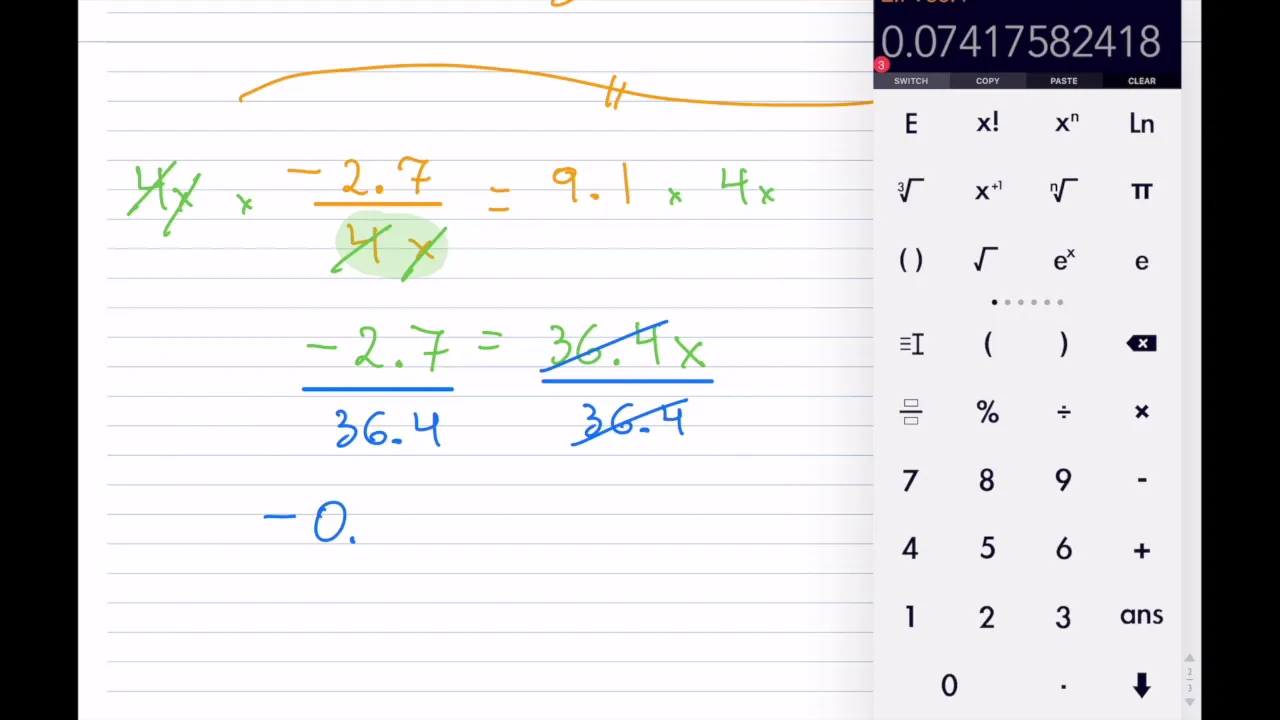 0.07417582418
3
SWITCH COPY PASTE CLEAR
4x × -2.7 / 4x = 9.1 × 4x
-2.7 / 36.4 = 36.4x / 36.4
-0.
E x! xⁿ Ln
³√ x⁺¹ ⁿ√ π
( ) √ eˣ e
( )
% ÷ ×
7 8 9 -
4 5 6 +
1 2 3 ans
0 .
2
3